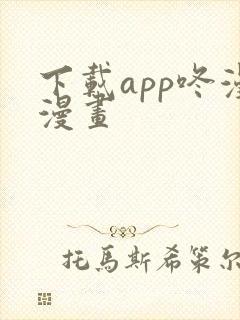 下載app咚漫
漫畫
托馬斯希策尔